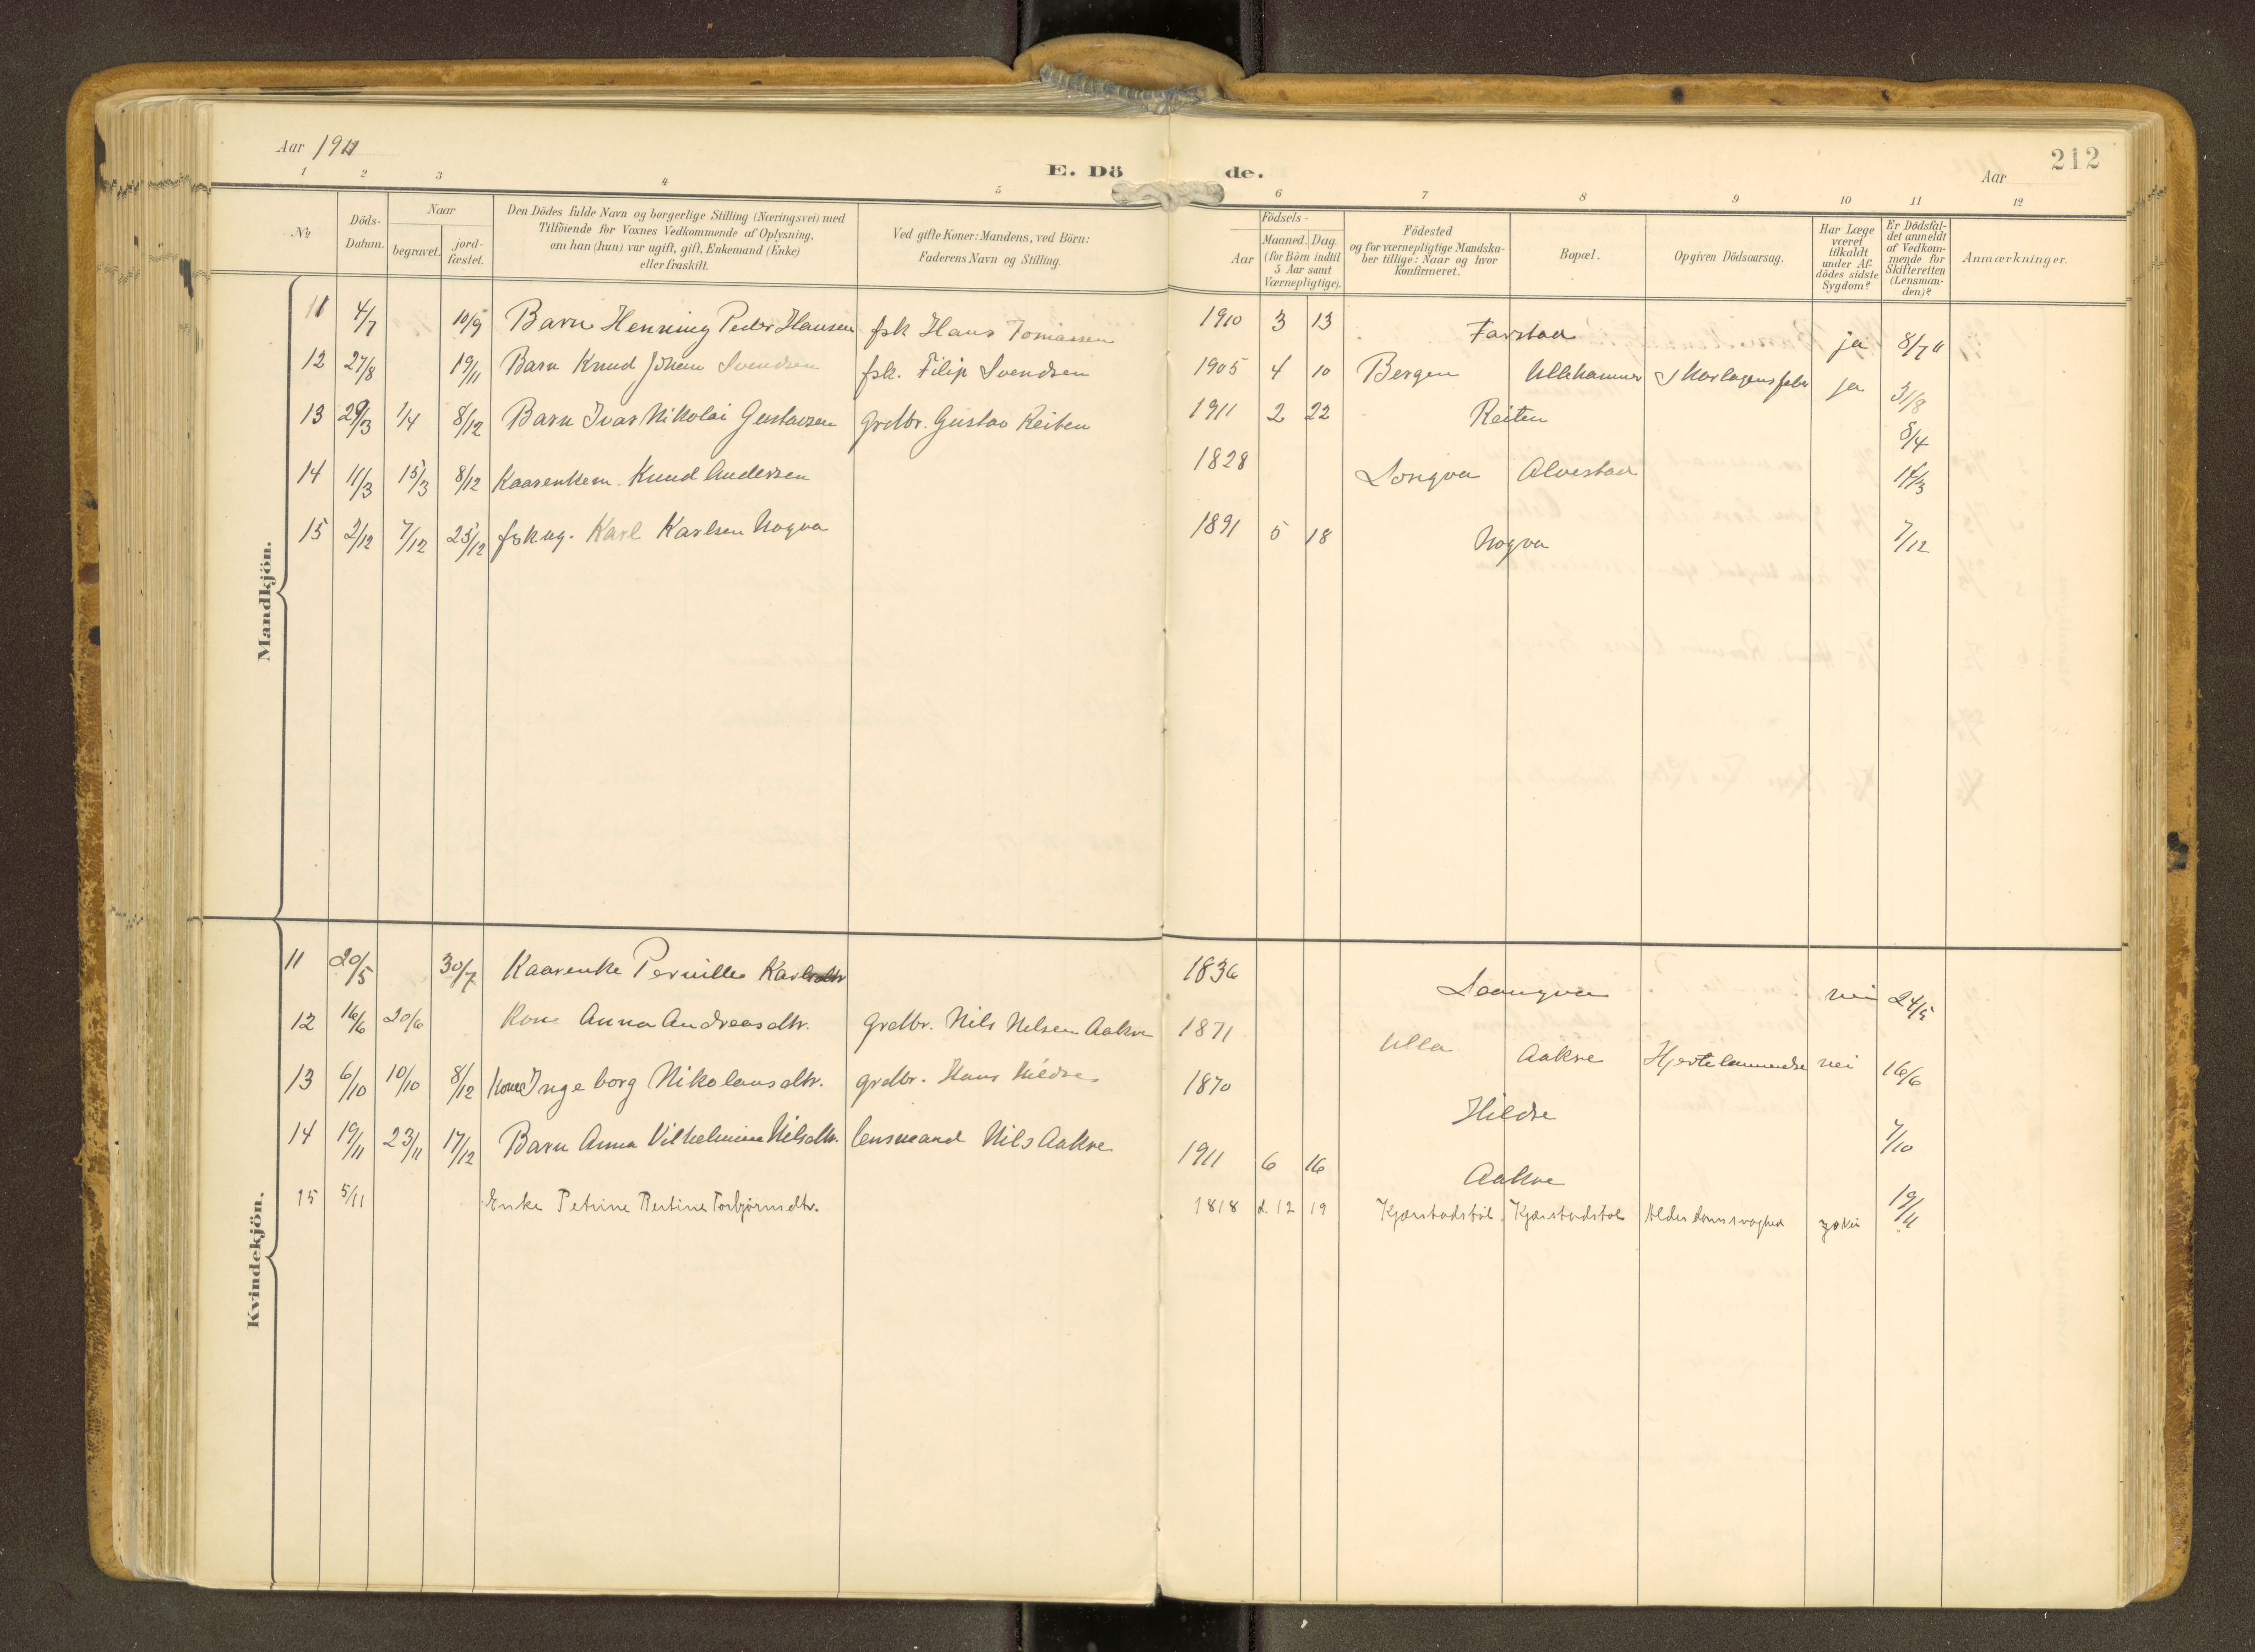 Aar 1911
E. Döde.
Aar
212
1 2 3 4 5 6 7 8 9 10 11 12
No
Döds-Datum.
Naar
begravet.
jord-fæstet.
Den Dödes fulde Navn og borgerlige Stilling (Næringsvei) med
Tilföiende for Voxnes Vedkommende af Oplysning,
om han (hun) var ugift, gift, Enkemand (Enke)
eller fraskilt.
Ved gifte Koner: Mandens, ved Börn:
Faderens Navn og Stilling.
Födsels-
Aar
Maaned. Dag
(for Börn indtil
5 Aar samt
Værnepligtige).
Födested
og for værnepligtige Mandska-
ber tillige: Naar og hvor
konfirmeret.
Bopæl.
Opgiven Dödsaarsag.
Har Læge
været
tilkaldt
under Af-
dödes sidste
Sygdom?
Er Dödsfal-
det anmeldt
af Vedkom-
mende for
Skifteretten
(Lensman-
den)?
Anmærkninger.
Mandkjön.
11 4/7 10/9 Barn Henning Peder Hansen fsk Hans Tomassen 1910 3 13 Farstad ja 8/7 11
12 27/8 19/11 Barn Knud Johan Svendsen fsk. Filip Svendsen 1905 4 10 Bergen Ullehammer Skarlagensfeber ja 31/8
13 29/3 1/4 8/12 Barn Ivar Nikolai Gustavsen grdbr. Gustav Reiten 1911 2 22 Reiten 8/4
14 11/3 15/3 8/12 Kaarenkem. Knud Andersen 1828 Longva Alvestad 14/3
15 2/12 7/12 23/12 fsk ug. Karl Karlsen Nogva 1891 5 18 Nogva 7/12
Kvindekjön.
11 20/5 30/7 Kaarenke Pernille Karlsdtr 1836 Loangva nei 24/5
12 16/6 20/6 Kone Anna Andreasdtr. grdbr. Nils Nilsen Aakre 1871 Ulla Aakre nei 16/6
13 6/10 10/10 8/12 Kone Ingeborg Nikolausdtr. grdbr. Hans Hildre 1870 Hildre 7/10
14 19/11 23/11 17/12 Barn Anna Vilhelmine Nilsdtr. lensmand Nils Aakre 1911 6 16 Aakre 19/11
15 5/11 Enke Petrine Bertine Torbjørnsdtr. 1818 12 19 Kjærstadstøl. Kjærstadstøl Alderdomssvaghed